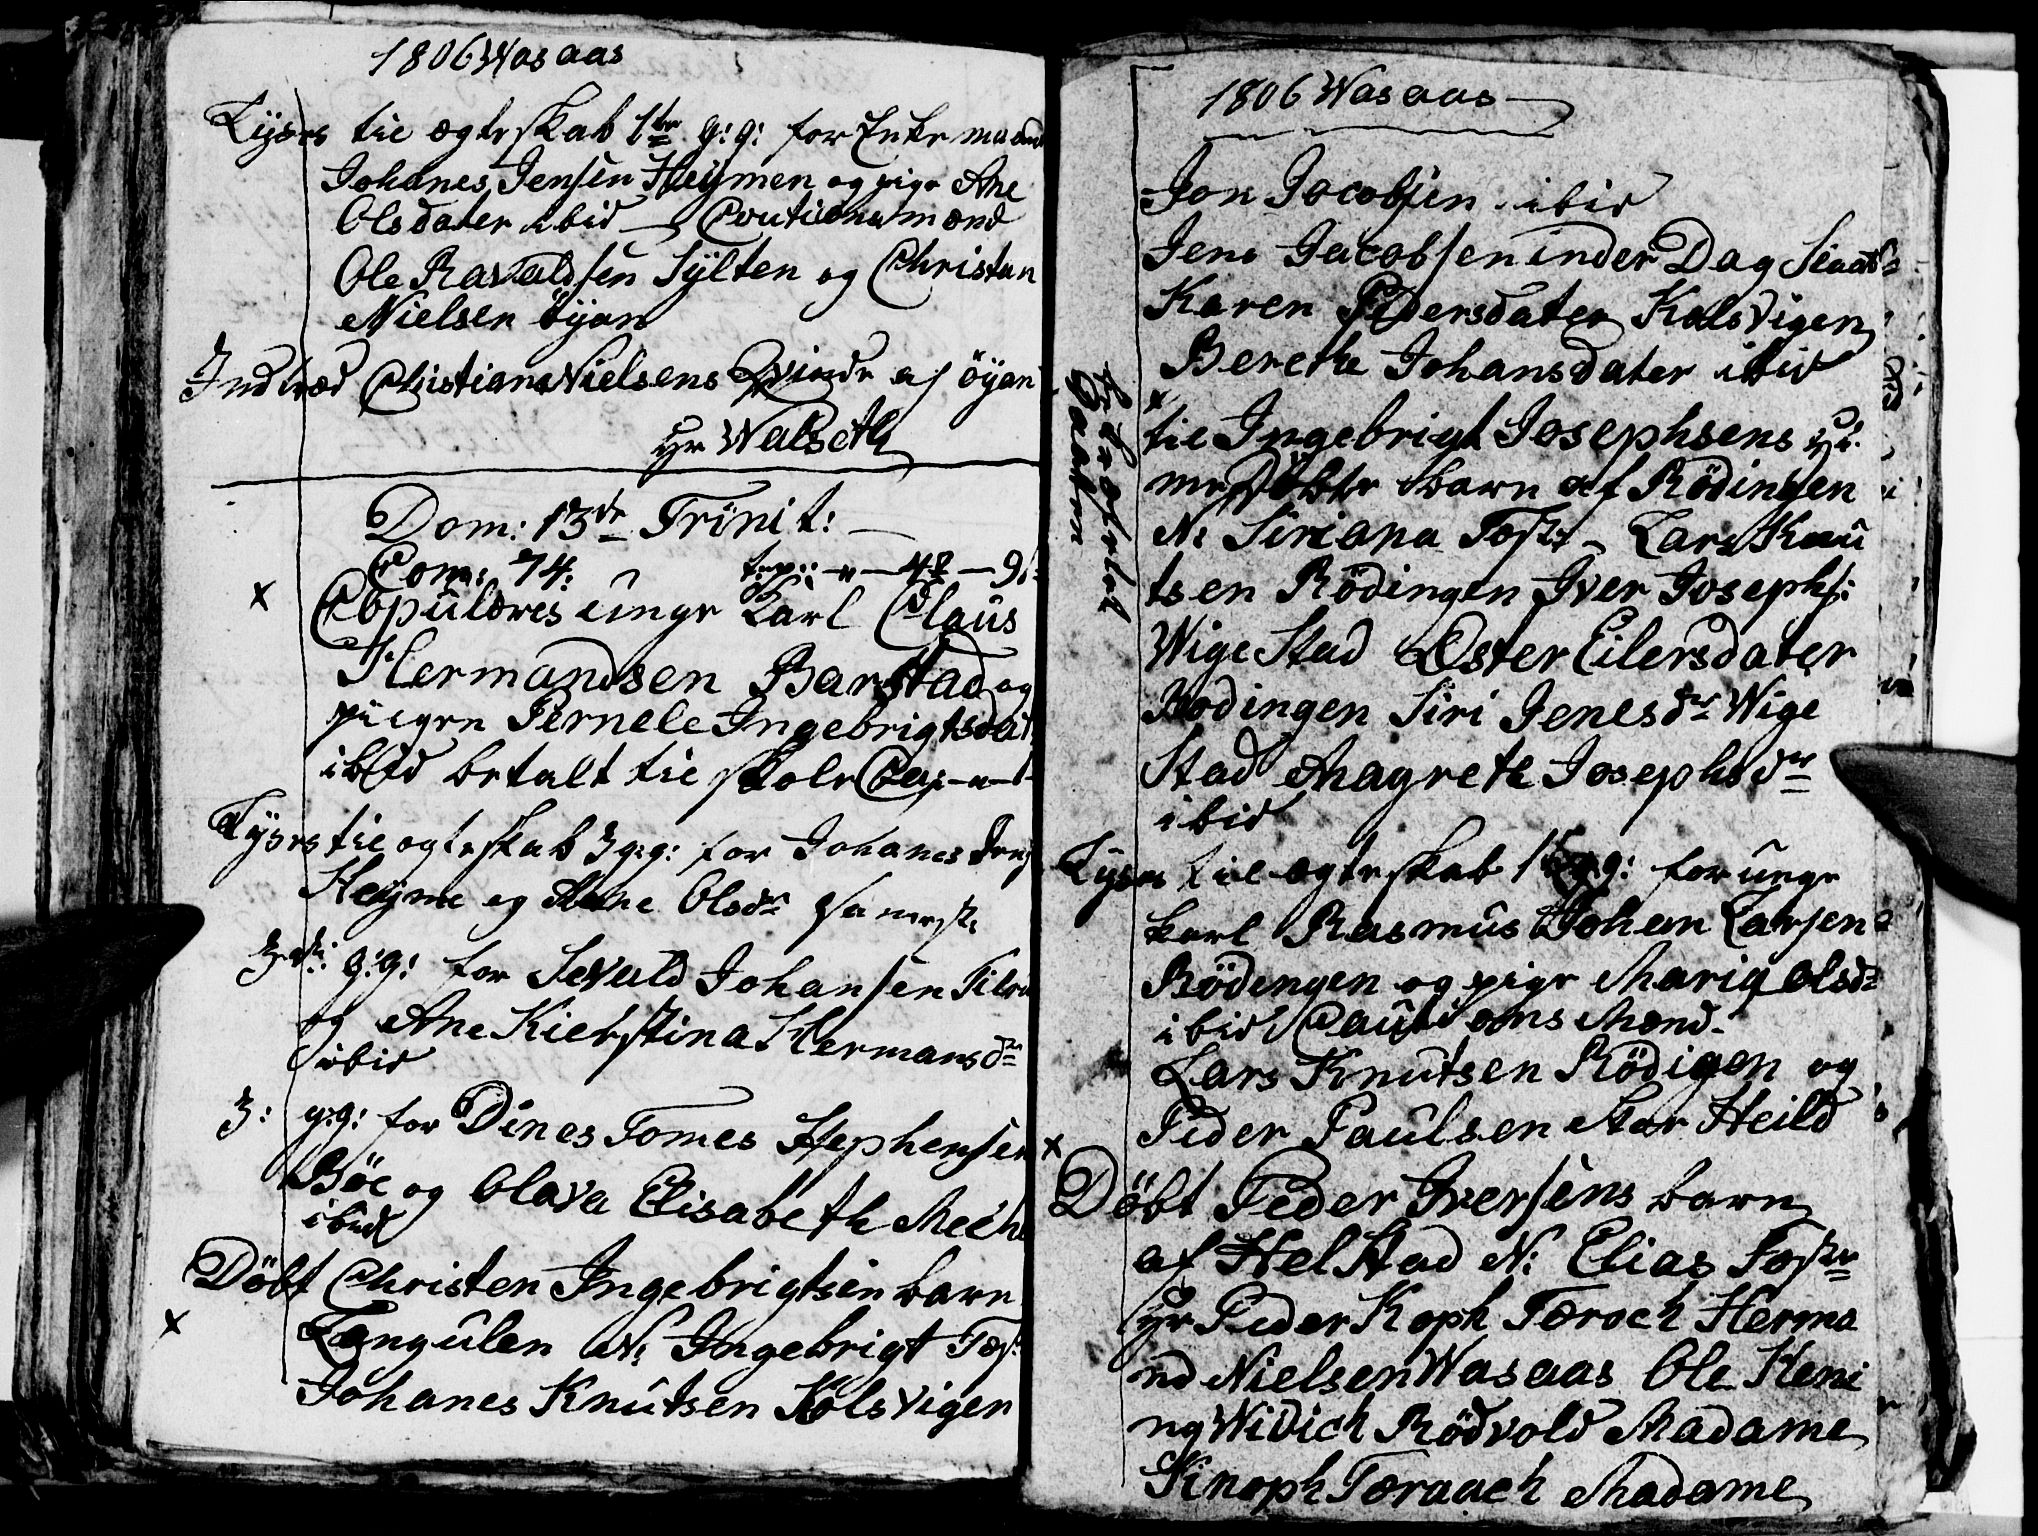 1806 Wasaas
Lyses til ægteskab 1te g: g: for Enkemand
Johanes Jensen Heymen og pige Ane
Olsdater ibid — Coutions mænd
Ole Ravaldsen Sylten og Christian
Nielsen öyan
Indled Christian Nielsens Qvinde af öyan
hr Walseth
Dom: 13de Trinit:
Com: 74:
Copuleres unge Karl Claus
Hermandsen Barstad og
piigen Pernele Ingebrigtsdat
ibid betalt til skole
Lyses til egteskab 3 g: g: for Johanes Jens
Heyme og Anne Olsdr samestr
3die g: g: for Sevald Johansen
og Ane Kierstina Hermansdr
ibid
3: g: g: for Dines Tomes Stephensen
Böe og Olava Elisabeth
ibid
Döbt Christen Ingebrigtsen barn
Langulen N: Ingebrigt Fas:
Johanes Knutsen Kolsvigen
1806 Wasaas
Jon Jacobsen ibid
Jens Jacobsen inder Dag
Karen Pedersdater Kolsvigen
Berethe Johansdater ibid
til Ingebrigt Josephsens
barn af Rödingen
N: Siriana Fas: Lars Knu
tsen Rödingen Iver Josephs:
Wigestad Oster Eilersdater
Rodingen Siri Jenesdr Wige
Stad Magrete Josephsdr
ibid
Lyses til ægteskab 1te g: g: for unge
karl Rasmus Johan Larsen
Rödengen og pige Maria Olsdr
ibid Cautions Mænd
Lars Knutsen Rödigen og
Peder Paulsen Star Heild
Döbt Peder Iversens barn
af Helstad N: Elias Fas:
hr Peder Koph Toroch Herma
nd Nielsen Wasaas Ole Heni
ng Widich Rödvold Madame
Kinoph Toraach Madame